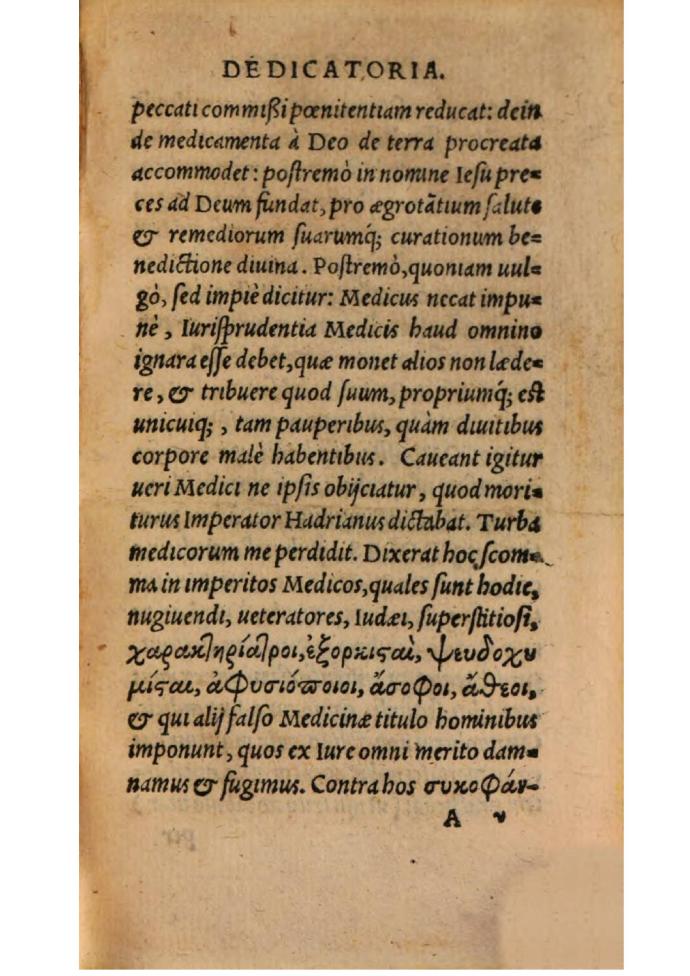 DEDICATORIA.
peccati commißi pœnitentiam reducat: dein
de medicamenta à Deo de terra procreata
accommodet: postremò in nomine Iesu pre-
ces ad Deum fundat, pro ægrotātium salute
& remediorum suarumq; curationum be-
nedictione diuina. Postremò, quoniam uul-
gò, sed impiè dicitur: Medicus necat impu-
nè, Iurisprudentia Medicis haud omnino
ignara esse debet, quæ monet alios non læde-
re, & tribuere quod suum, propriumq; est
unicuiq;, tam pauperibus, quàm diuitibus
corpore malè habentibus. Caueant igitur
ueri Medici ne ipsis obijciatur, quod mori-
turus Imperator Hadrianus dictabat. Turba
medicorum me perdidit. Dixerat hoc scom-
ma in imperitos Medicos, quales sunt hodie,
nugiuendi, ueteratores, Iudæi, superstitiosi,
χαρακτηρίατροι, ἐξορκισταὶ, ψευδοχυ
μίσται, ἀφυσιόποιοι, ἄσοφοι, ἄθεοι,
& qui alij falso Medicinæ titulo hominibus
imponunt, quos ex Iure omni merito dam-
namus & fugimus. Contra hos συκοφάν-
A v